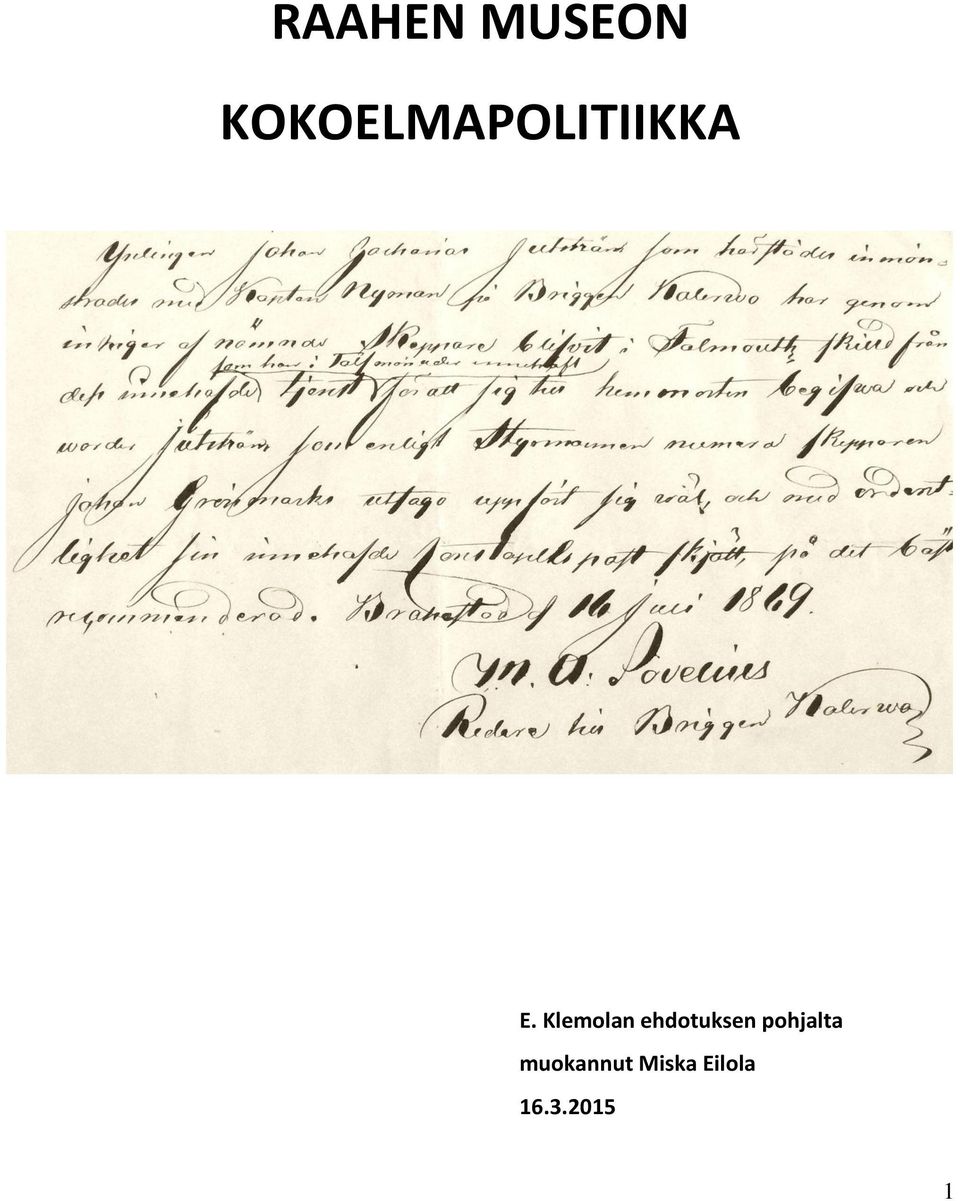 RAAHEN MUSEON
KOKOELMAPOLITIIKKA
Ynlingen Johan Zacharias Julsträm som härstädes inmön-
strades med Kapten Nyman på Briggen Kalerwo har genom
intriger af nämnde Skeppare blifvit i Falmouth skild från
som han i Tolf månader innehaft
dess innehafde tjenst för att sig till hemmorten begifwa och
worder Julsträm som enligt Styrmannen numera Skepparen
Johan Grönmarks utsago uppfört sig wäl, och med ordent-
lighet sin innehafde Konstapells post skjött, på det bäst
recommenderad. Brahestad 16 Juli 1869.
M. A. Sovelius
Redare till Briggen Kalerwo
E. Klemolan ehdotuksen pohjalta
muokannut Miska Eilola
16.3.2015
1